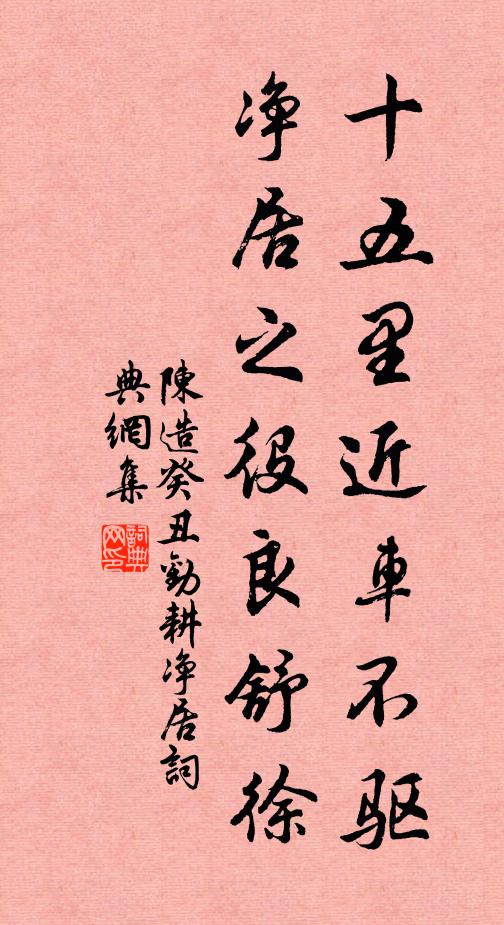 十五里近車不驱
净居之役良舒徐
陳造癸丑勸耕净居詞
典網集
詞典网印